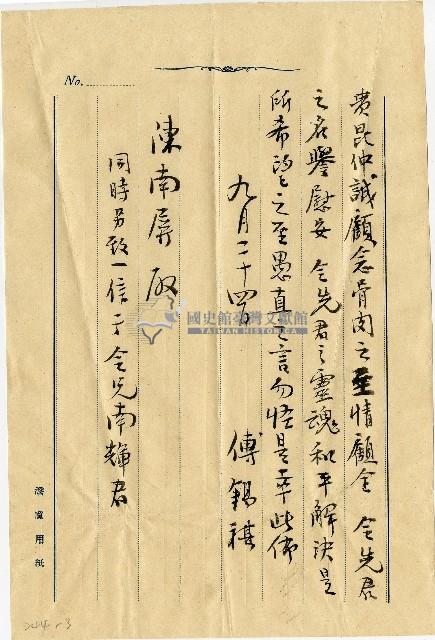 貴昆仲誠顧念骨肉之至情顧全 令先君
之名譽慰安 令先君之靈魂和平解決是
所希望之至愚直之言勿怪是幸此佈
九月二十四日 傅錫祺
陳南屏殿
同時另致一信于令兄南輝君
No.
國史館臺灣文獻館
TAIWAN HISTORICA
用紙